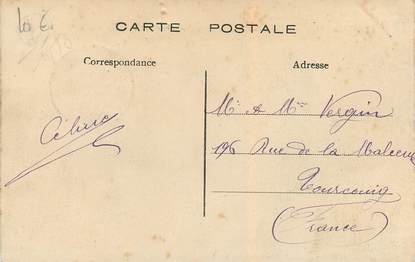 10 €
CARTE POSTALE
Correspondance
Adresse
Mr & Mme Vergin
196 Rue de la Malcense
Tourcoing
(France)